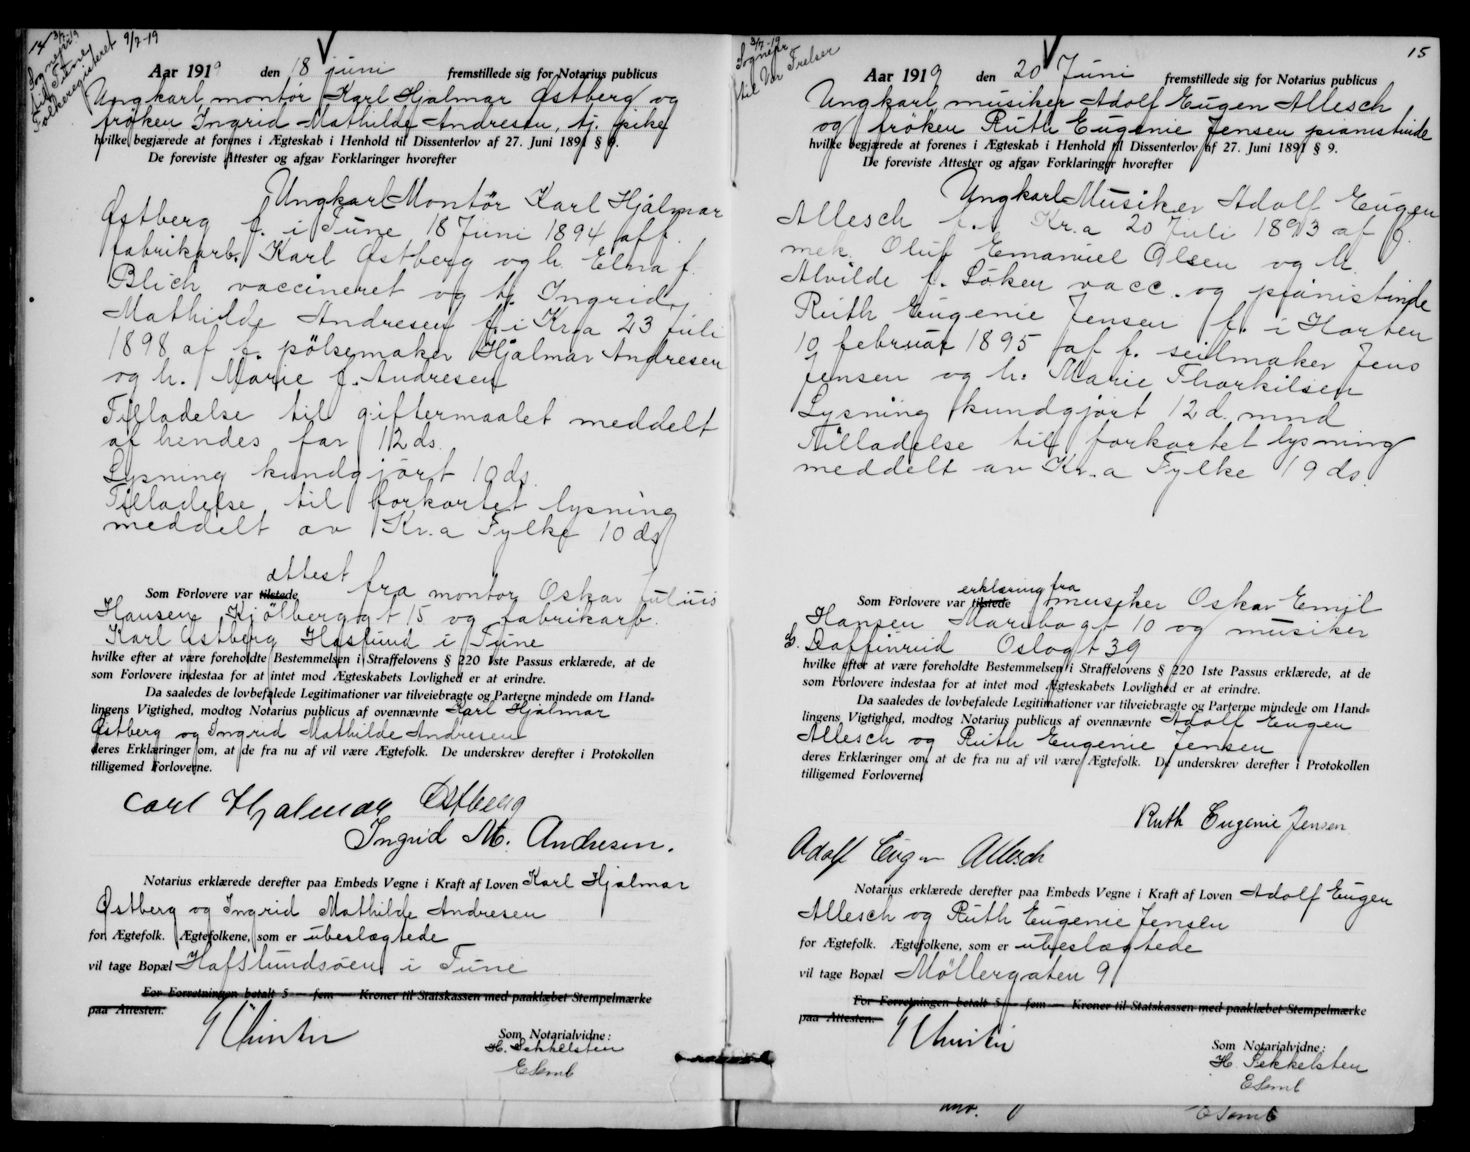 3/7-19
Sognepr
til Tune
Folkeregisteret 9/7-19
Aar 1919 den 18 juni fremstillede sig for Notarius publicus
Ungkarl montør Karl Hjalmar Østberg og
frøken Ingrid Mathilde Andresen, tj. pike
hvilke begjærede at forenes i Ægteskab i Henhold til Dissenterlov af 27. Juni 1891 § 9.
De foreviste Attester og afgav Forklaringer hvorefter
Ungkarl Montör Karl Hjalmar
Østberg f. i Tune 18 Juni 1894 af f.
fabrikarb. Karl Østberg og h. Elna f.
Blich vaccineret og t. Ingrid
Mathilde Andresen f. i Kr.a 23 Juli
1898 af f. pölsemaker Hjalmar Andresen
og h. Marie f. Andresen
Tilladelse til giftermaalet meddelt
af hendes far 12 ds.
Lysning kundgjört 10 ds.
Tilladelse til forkortet lysning
meddelt av Kr.a Fylke 10 ds
attest fra montör Oskar Julius
Som Forlovere var tilstede
Hansen Kjölberggt 15 og fabrikarb.
Karl Østberg Haslund i Tune
hvilke efter at være foreholdte Bestemmelsen i Straffelovens § 220 1ste Passus erklærede, at de
som Forlovere indestaa for at intet mod Ægteskabets Lovlighed er at erindre.
Da saaledes de lovbefalede Legitimationer var tilveiebragte og Parterne mindede om Hand=
lingens Vigtighed, modtog Notarius publicus af ovennævnte Karl Hjalmar
Østberg og Ingrid Mathilde Andresen
deres Erklæringer om, at de fra nu af vil være Ægtefolk. De underskrev derefter i Protokollen
tilligemed Forloverne.
Carl Hjalmar Østberg
Ingrid M. Andresen.
Notarius erklærede derefter paa Embeds Vegne i Kraft af Loven Karl Hjalmar
Østberg og Ingrid Mathilde Andresen
for Ægtefolk. Ægtefolkene, som er ubeslægtede
vil tage Bopæl Hafslundsöen i Tune
For Forretningen betalt 5 — fem — Kroner til Statskassen med paaklæbet Stempelmærke
paa Attesten.
Som Notarialvidne:
H. Sekkelsten
E Semb
15
3/7-19
Sognepr
til Vor Frelser
Aar 1919 den 20 Juni fremstillede sig for Notarius publicus
Ungkarl, musiker Adolf Eugen Allesch
og fröken Ruth Eugenie Jensen pianistinde
hvilke begjærede at forenes i Ægteskab i Henhold til Dissenterlov af 27. Juni 1891 § 9.
De foreviste Attester og afgav Forklaringer hvorefter
Ungkarl Musiker Adolf Eugen
Allesch f. Kr.a 20 Juli 1893 af f.
mek. Oluf Emanuel Olsen og h.
Alvilde f. Löken vacc. og pianistinde
Ruth Eugenie Jensen f. i Horten
10 februar 1895 af f. seilmaker Jens
Jensen og h. Marie Thorkilsen
Lysning kundgjört 12 d. mnd
Tilladelse til forkortet lysning
meddelt av Kr.a Fylke 19 ds.
erklæring fra
Som Forlovere var tilstede musiker Oskar Emil
Hansen Maribogt 10 og musiker
Daffinrud Oslogt 39
hvilke efter at være foreholdte Bestemmelsen i Straffelovens § 220 1ste Passus erklærede, at de
som Forlovere indestaa for at intet mod Ægteskabets Lovlighed er at erindre.
Da saaledes de lovbefalede Legitimationer var tilveiebragte og Parterne mindede om Hand=
lingens Vigtighed, modtog Notarius publicus af ovennævnte Adolf Eugen
Allesch og Ruth Eugenie Jensen
deres Erklæringer om, at de fra nu af vil være Ægtefolk. De underskrev derefter i Protokollen
tilligemed Forloverne.
Ruth Eugenie Jensen
Adolf Eugen Allesch
Notarius erklærede derefter paa Embeds Vegne i Kraft af Loven Adolf Eugen
Allesch og Ruth Eugenie Jensen
for Ægtefolk. Ægtefolkene, som er ubeslægtede
vil tage Bopæl Möllergaten 9
For Forretningen betalt 5 — fem — Kroner til Statskassen med paaklæbet Stempelmærke
paa Attesten.
Som Notarialvidne:
H. Sekkelsten
E Semb
E Semb